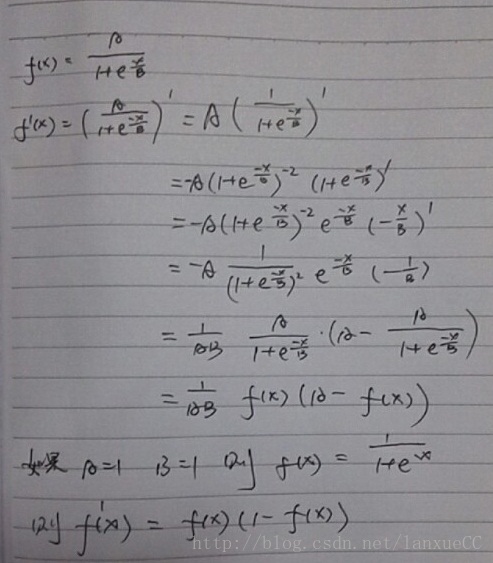 f(x) = A / (1+e^(-x/B))
f'(x) = (A / (1+e^(-x/B)))' = A (1 / (1+e^(-x/B)))'
= -A (1+e^(-x/B))^-2 (1+e^(-x/B))'
= -A (1+e^(-x/B))^-2 e^(-x/B) (-x/B)'
= -A 1 / (1+e^(-x/B))^2 e^(-x/B) (-1/B)
= 1/AB A / (1+e^(-x/B)) · (A - A / (1+e^(-x/B)))
= 1/AB f(x) (A - f(x))
如果 A=1 B=1 则 f(x) = 1 / (1+e^-x)
则 f'(x) = f(x) (1 - f(x))
http://blog.csdn.net/lanxueCC